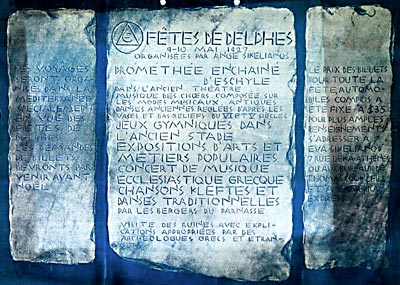 FÊTES DE DELPHES
9-10 MAI 1927
ORGANISÉES PAR ANGE SIKELIANOS
PROMETHÉE ENCHAINÉ
D'ESCHYLE
DANS L'ANCIEN THÉATRE
MUSIQUE DES CHŒURS COMPOSÉE SUR
LES MODES MUSICAUX ANTIQUES
DANSES ANCIENNES RÉGLÉES D'APRÈS LES
VASES ET BAS RELIEFS DU VI ET V SIÈCLE
JEUX GYMNIQUES DANS
L'ANCIEN STADE
EXPOSITIONS D'ARTS ET
MÉTIERS POPULAIRES
CONCERT DE MUSIQUE
ECCLESIASTIQUE GRECQUE
CHANSONS KLEFTES ET
DANSES TRADITIONNELLES
PAR LES BERGERS DU PARNASSE
VISITE DES RUINES AVEC EXPLI-
CATIONS APPROPRIÉES PAR DES
ARCHÉOLOGUES GRECS ET ÉTRAN-
DES VOYAGES
SERONT ORGA-
NISÉS DANS LA
MEDITERRANÉE
SPÉCIALEMENT
LES DEMANDES
DE BILLETS
DEVRONT PAR-
VENIR AVANT
NOËL
LE PRIX DES BILLETS
POUR TOUTE LA
FÊTE, AUTOMO-
BILES COMPRIS A
ÉTÉ FIXÉ A
POUR PLUS AMPLES
RENSEIGNEMENTS
S'ADRESSER A
EVA SIKELIANOS
ATHÈNES
OU AUX BUREAUX DE
EXPRESS